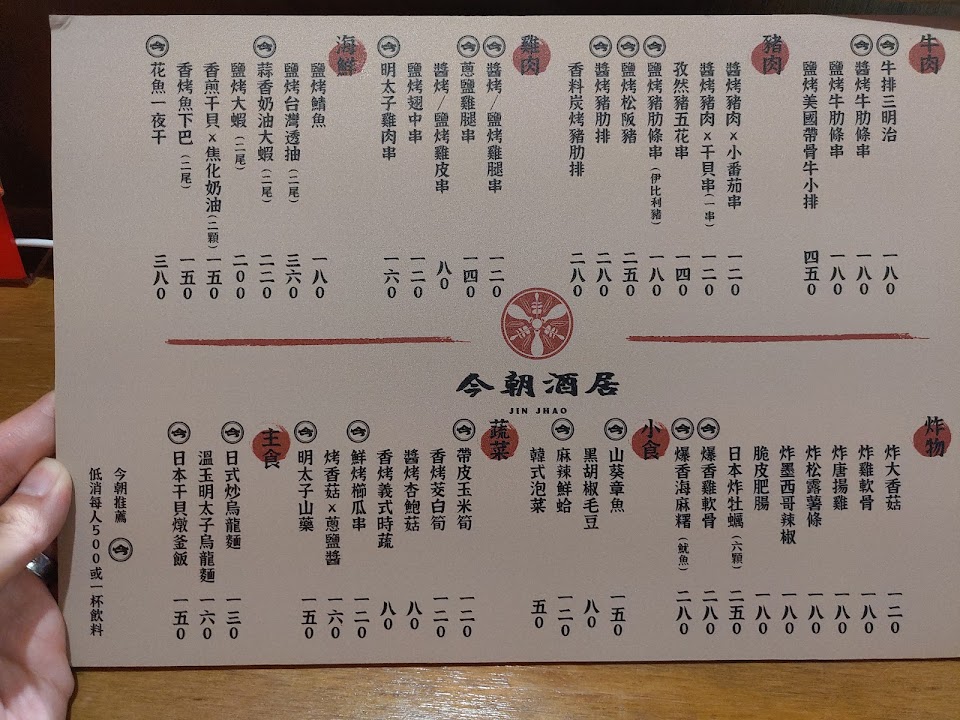 牛肉
今 牛排三明治 一八0
今 醬烤牛肋條串 一八0
鹽烤牛肋條串 一八0
鹽烤美國帶骨牛小排 四五0
豬肉
醬烤豬肉×小番茄串 一二0
醬烤豬肉×干貝串(一串) 一二0
孜然豬五花串 一四0
今 鹽烤豬肋條串(伊比利豬) 一八0
今 鹽烤松阪豬 二五0
今 醬烤豬肋排 二八0
香料炭烤豬肋排 二八0
雞肉
今 醬烤/鹽烤雞腿串 一二0
今 蔥鹽雞腿串 一四0
醬烤/鹽烤雞皮串 八0
鹽烤翅中串 一二0
今 明太子雞肉串 一六0
海鮮
鹽烤鯖魚 一八0
鹽烤台灣透抽(二尾) 三六0
今 蒜香奶油大蝦(二尾) 二二0
鹽烤大蝦(二尾) 二00
香煎干貝×焦化奶油(二顆) 一五0
香烤魚下巴(二尾) 一五0
今 花魚一夜干 三八0
今朝酒居
JIN JHAO
炸物
炸大香菇 一二0
炸雞軟骨 一八0
炸唐揚雞 一八0
炸松露薯條 一八0
炸墨西哥辣椒 一八0
脆皮肥腸 一八0
日本炸牡蠣(六顆) 二五0
今 爆香雞軟骨 二八0
今 爆香海麻糬(魷魚) 二八0
小食
今 山葵章魚 一五0
黑胡椒毛豆 八0
今 麻辣鮮蛤 一二0
韓式泡菜 五0
蔬菜
今 帶皮玉米筍 一二0
香烤茭白筍 一二0
醬烤杏鮑菇 八0
香烤義式時蔬 八0
今 鮮烤櫛瓜串 一二0
烤香菇×蔥鹽醬 一六0
今 明太子山藥 一五0
主食
今 日式炒烏龍麵 一三0
溫玉明太子烏龍麵 一六0
今 日本干貝燉釜飯 一五0
今朝推薦 今
低消每人500或一杯飲料